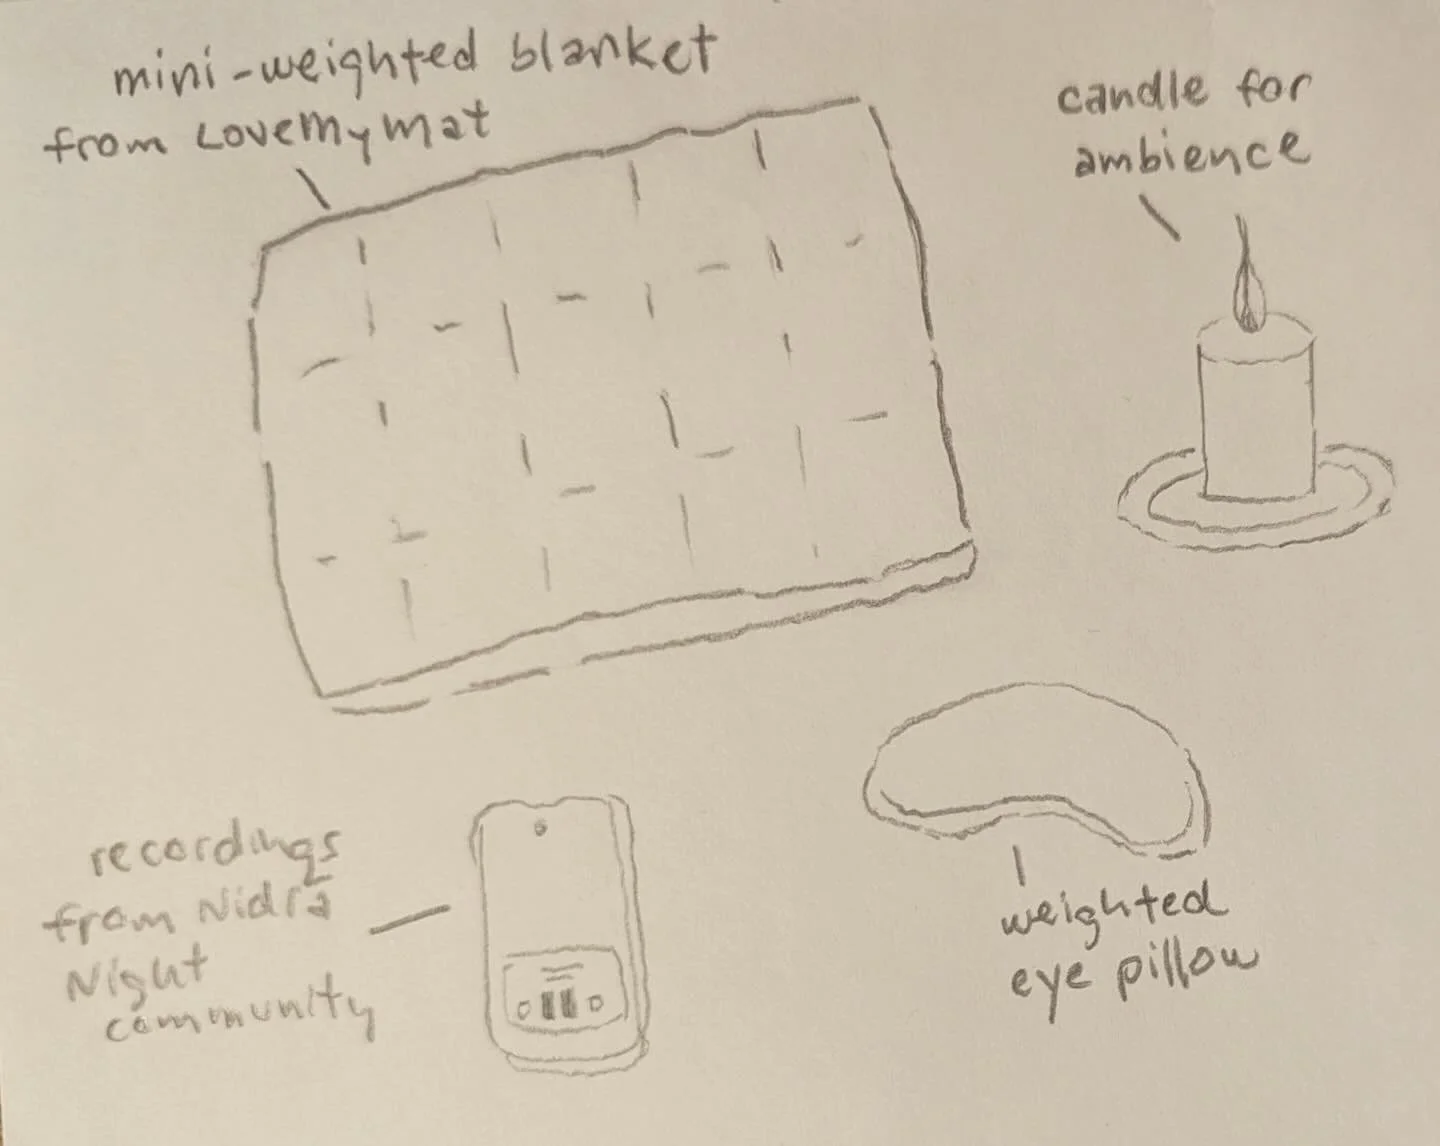 mini-weighted blanket
from LoveMyMat
candle for
ambience
recordings
from Nidra
Night
community
weighted
eye pillow